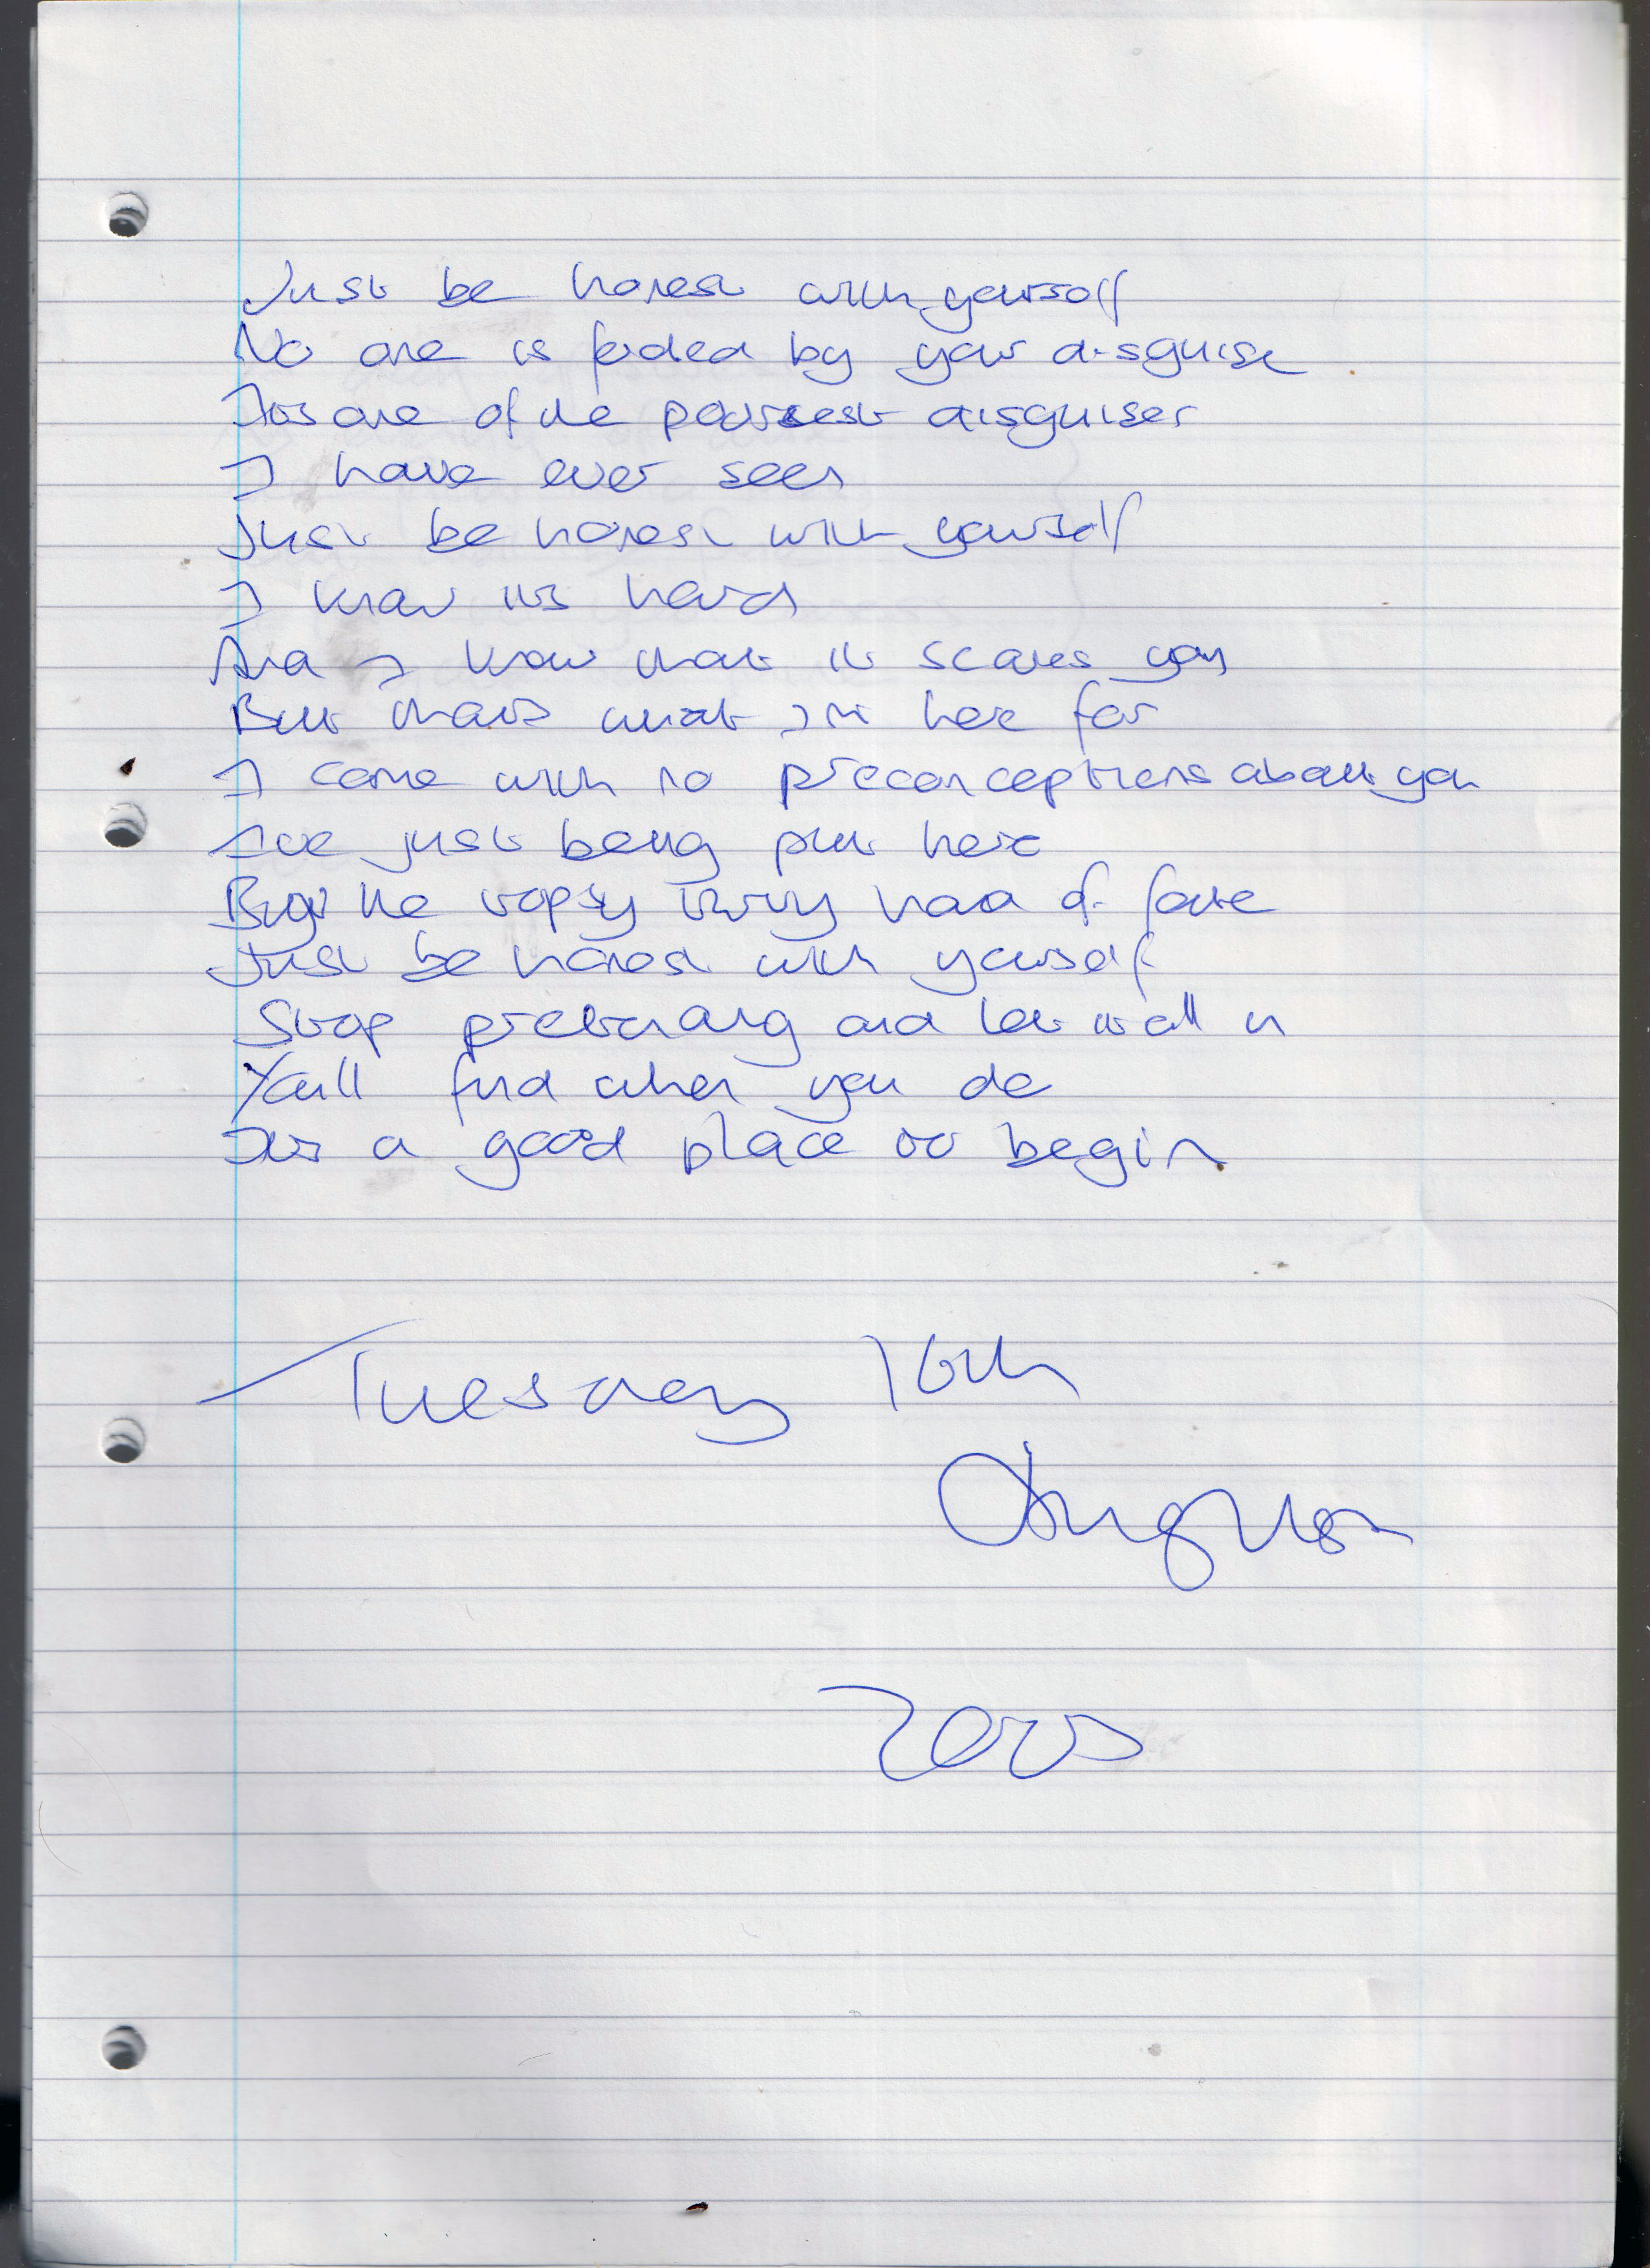 Just be honest with yourself
No one is fooled by your disguise
Its one of the poorest disguises
I have ever seen
Just be honest with yourself
I know its hard
And I know that it scares you
But thats what Im here for
I come with no preconceptions about you
Ive just being put here
By the topsy turvy hand of fate
Just be honest with yourself
Stop pretending and let it all in
Youll find when you do
Its a good place to begin
Tuesday 16th
August
2005